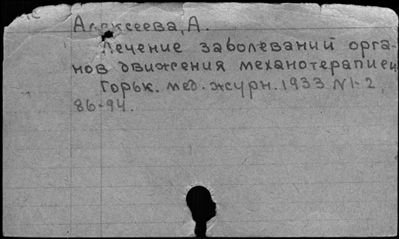 Алексеева, А.
Лечение заболеваний орга-
нов движения механотерапией
Горьк. мед. журн. 1933 N1-2,
86-94.